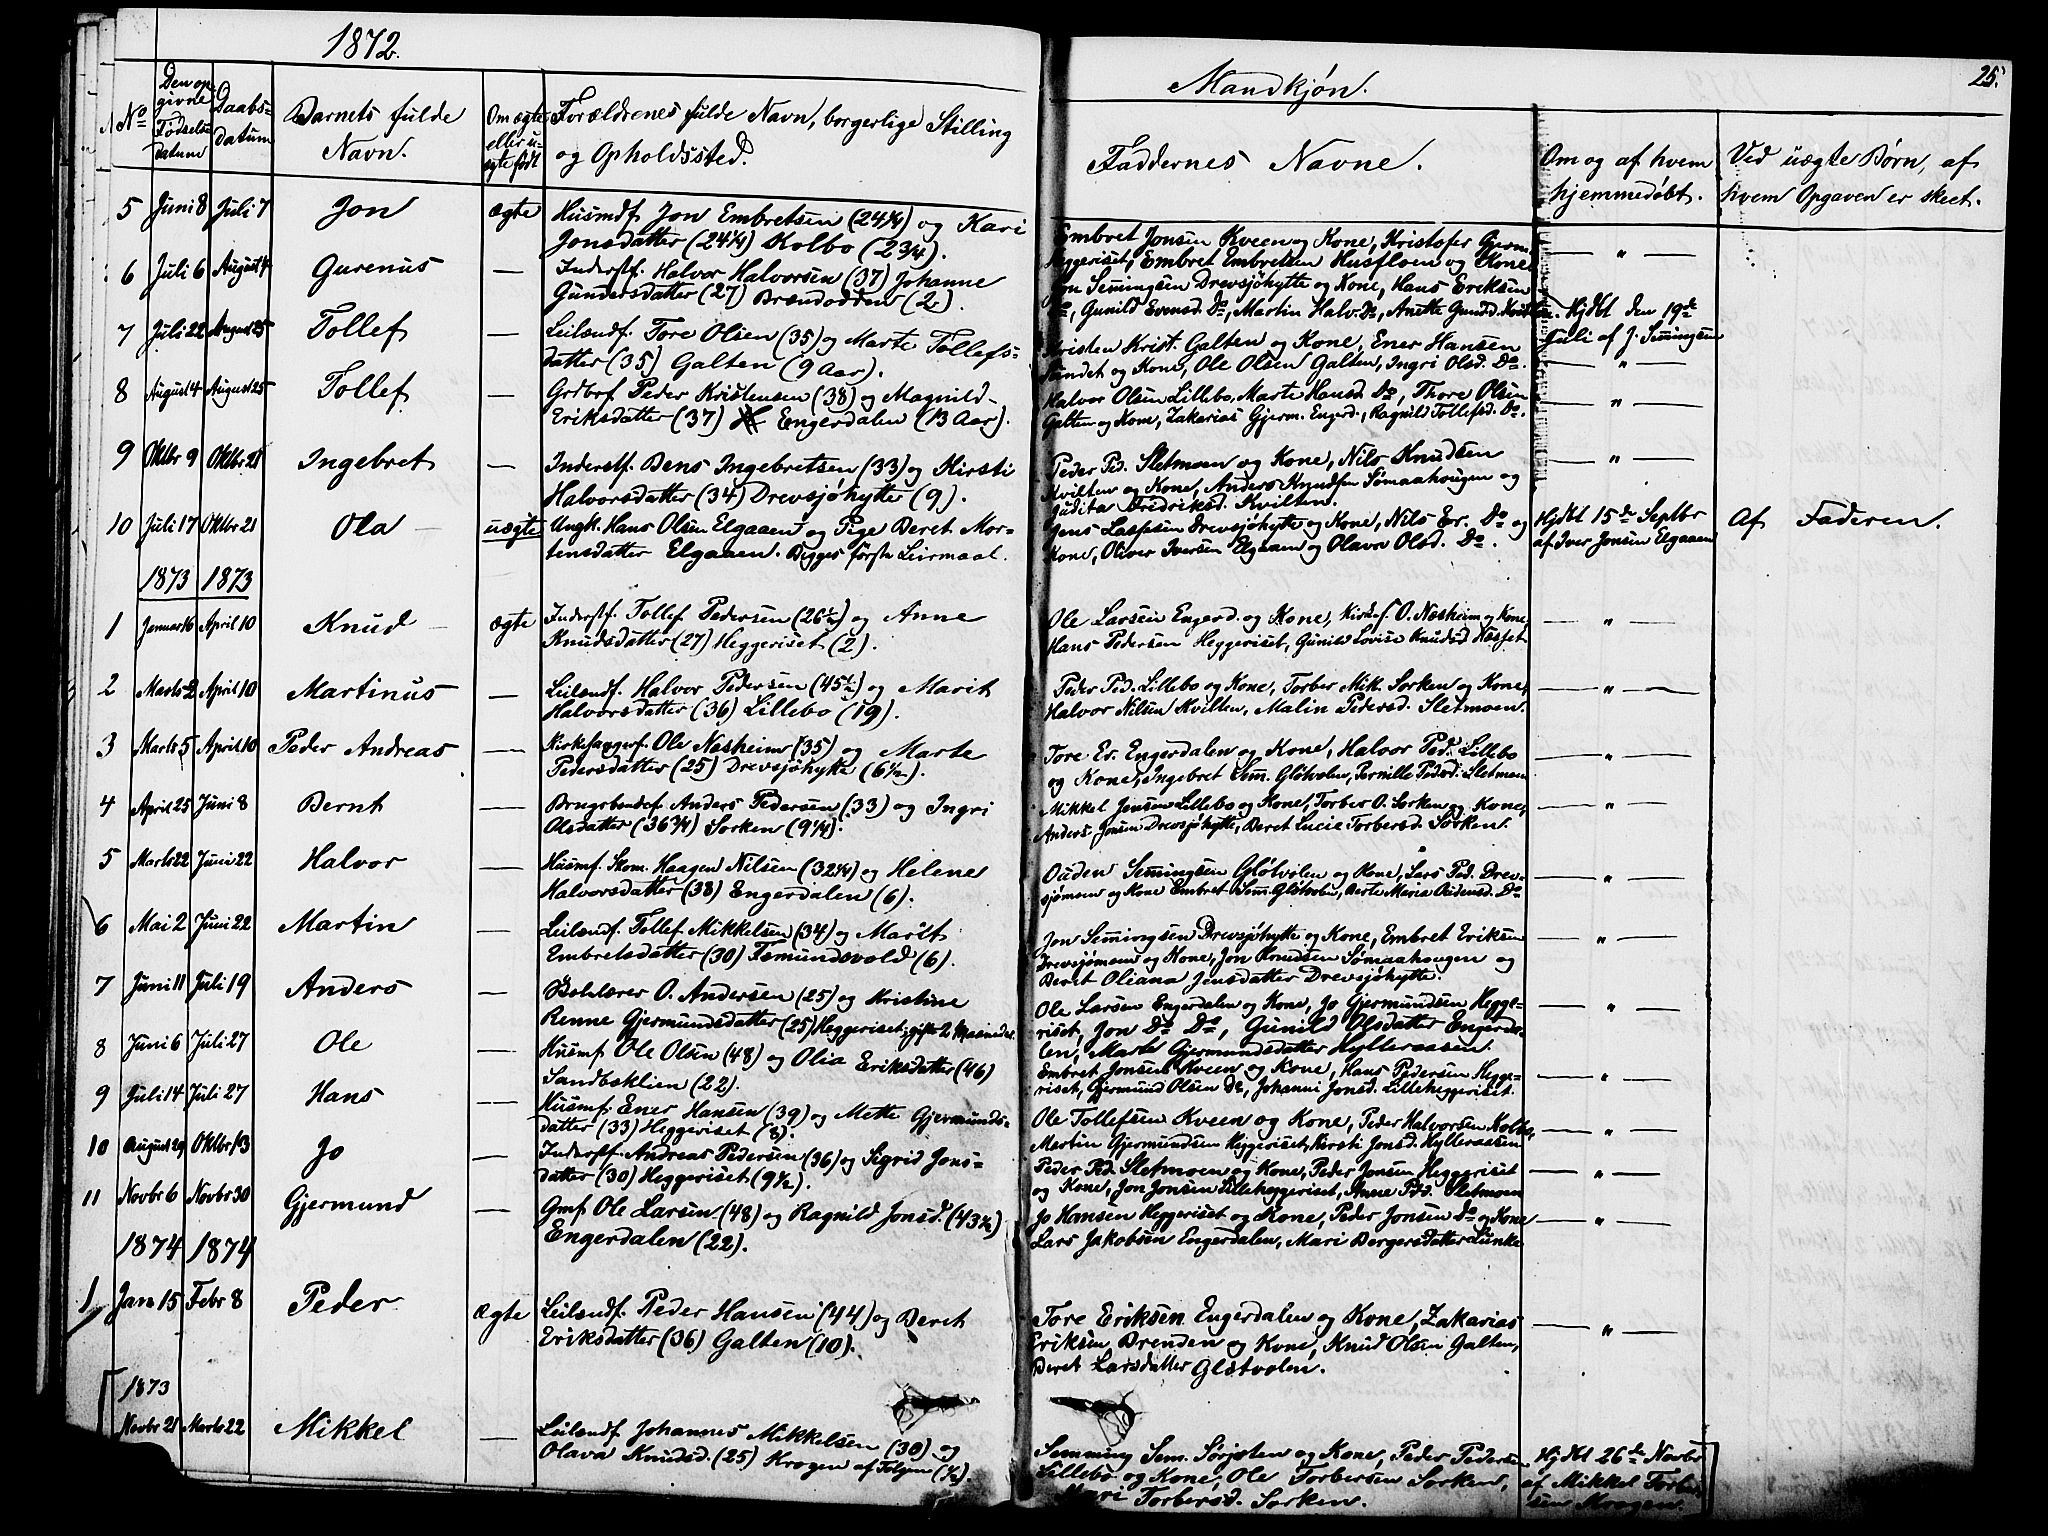 1872.
Mandkjøn.
25.
No
Den opgivne Fødselsdatum
Daabsdatum
Barnets fulde Navn.
Om ægte eller uægte født
Forældrenes fulde Navn, borgerlige Stilling og Opholdssted.
Faddernes Navne.
Om og af hvem hjemmedøbt.
Ved uægte Børn, af hvem Opgaven er skeet.
5 Juni 8 Juli 7 Jon ægte Husmdf. Jon Embretsen (24 1/4) og Kari
Jonsdatter (24 1/4) Kolbo (2 3/4).
Embret Jonsen Kveen og Kone, Kristofer Gjerm.
Heggeriset, Embret Embretsen Husfloen og Kone
— " —
6 Juli 6 August 4 Gurenus — Inderstf. Halvor Halvorsen (37) Johanne
Gundersdatter (27) Brændodden (2).
Jon Semingsen Drevsjøhytte og Kone, Hans Eriksen
Do, Gunild Evensd. Do, Martin Halv. Do, Anette Gunded.
Hjdbt den 19de
Juli af J. Semingsen
7 Juli 22 August 25 Tollef — Leilændf. Tore Olsen (35) og Marte Tollefs-
datter (35) Galten (9 Aar).
Kristen Krist. Galten og Kone, Ener Hansen
Sundet og Kone, Ole Olsen Galten, Ingri Olsd. Do.
— " —
8 August 4 August 25 Tollef — Grdbrf. Peder Kristensen (38) og Magnild
Eriksdatter (37) Engerdalen (13 Aar).
Halvor Olsen Lillebo, Marte Hansd. Do, Thore Olsen
Galten og Kone, Zakarias Gjerm. Engerd., Ragnild Tollefsd. Do.
— " —
9 Oktbr 9 Oktbr 21 Ingebret — Inderstf. Bens Ingebretsen (33) og Kirsti
Halvorsdatter (34) Drevsjøhytte (9).
Peder Ped. Sletmoen og Kone, Nils Knudsen
Kvilten og Kone, Anders Knudsen Sømaahougen og
Gudita Fredriksd. Kvilten.
— " —
10 Juli 17 Oktbr 21 Ola uægte Ungk. Hans Olsen Elgaaen og Pige Beret Mor-
tensdatter Elgaaen. Begges første Leirmaal.
Jens Larsen Drevsjøhytte og Kone, Nils Er. Do og
Kone, Oliver Iversen Elgaaen og Olava Olsd. Do.
Hjdbt 15de Septbr
af Iver Jonsen Elgaaen
Af Faderen.
1873 1873
1 Januar 16 April 10 Knud ægte Inderstf. Tollef Pedersen (26 1/2) og Anne
Knudsdatter (27) Heggeriset (2).
Ole Larsen Engerd. og Kone, Kirkesf. O. Næsheim og Kone,
Hans Pedersen Heggeriset, Gunild Lovise Knudsd Næsset.
— " —
2 Marts 2 April 10 Martinus — Leilændf. Halvor Pedersen (45 1/2) og Marit
Halvorsdatter (36) Lillebo (19).
Peder Ped. Lillebo og Kone, Torber Mik. Sorken og Kone,
Halvor Nilsen Kvilten, Malin Pedersd. Sletmoen.
— " —
3 Marts 5 April 10 Peder Andreas — Kirkesangerf. Ole Næsheim (35) og Marte
Pedersdatter (25) Drevsjøhytte (6 1/2).
Tore Er. Engerdalen og Kone, Halvor Ped. Lillebo
og Kone, Ingebret Sem. Gløtvolen, Pernille Pedsd. Sletmoen
— " —
4 April 25 Juni 8 Bernt — Brugsbendef. Anders Pedersen (33) og Ingri
Olsdatter (36 3/4) Sorken (9 1/4).
Mikkel Jensen Lillebo og Kone, Torber O. Sorken og Kone,
Anders Jonsen Drevsjøhytte, Beret Lucie Torbersd. Sorken.
— " —
5 Marts 22 Juni 22 Halvor — Husmf. Skom. Haagen Nilsen (32 1/4) og Helene
Halvorsdatter (38) Engerdalen (6).
Ouden Semingsen Gløtvolen og Kone, Lars Ped. Drev-
sjømoen og Kone Embret Sem. Gløtvolen, Berte Maria Oudensd. Do
— " —
6 Mai 2 Juni 22 Martin — Leilændf. Tollef Mikkelsen (34) og Marit
Embretsdatter (30) Femundsvold (6).
Jon Semingsen Drevsjøhytte og Kone, Embret Eriksen
Drevsjømoen og Kone, Jon Knudsen Sømaahougen og
Beret Oliana Jensdatter Drevsjøhytte.
— " —
7 Juni 11 Juli 19 Anders — Skolelærer O. Andersen (25) og Kristine
Renne Gjermundsdatter (25) Heggeriset; gifte 2 Maaneder.
Ole Larsen Engerdalen og Kone, Jo Gjermundsen Hegge-
riset, Jon Do Do, Gunild Olsdatter Engerda-
len, Marte Gjermundsdatter Hylleraasen.
— " —
8 Juni 6 Juli 27 Ole — Husmf. Ole Olsen (48) og Olia Eriksdatter (46)
Sandbæklien (22).
Embret Jonsen Kveen og Kone, Hans Pedersen Hegge-
riset, Gjermund Olsen Do, Johanne Jonsd. Lilleheggeriset.
— " —
9 Juli 14 Juli 27 Hans — Husmf. Ener Hansen (39) og Mette Gjermunds-
datter (33) Heggeriset (8).
Ole Tollefsen Kveen og Kone, Peder Halvorsen Kolbo,
Martin Gjermundsen Heggeriset, Kirsti Jonsd. Hylleraasen
— " —
10 August 29 Oktbr 13 Jo — Inderstf. Andreas Pedersen (36) og Sigrid Jons-
datter (30) Heggeriset (9 1/2).
Peder Ped. Sletmoen og Kone, Peder Jonsen Heggeriset
og Kone, Jon Jonsen Lilleheggeriset, Anne Pd. Sletmoen
— " —
11 Novbr 6 Novbr 30 Gjermund — Gmf. Ole Larsen (48) og Ragnild Jonsd. (43 1/2)
Engerdalen (22).
Jo Hansen Heggeriset og Kone, Peder Jonsen Do og Kone
Lars Jakobsen Engerdalen, Mari Bergersdatter Lunke
— " —
1874 1874
1 Jan 15 Febr 8 Peder ægte Leilændf. Peder Hansen (44) og Beret
Eriksdatter (36) Galten (10).
Tore Eriksen Engerdalen og Kone, Zakarias
Eriksen Brenden og Kone, Knud Olsen Galten,
Beret Larsdatter Gløtvolen.
— " —
1873
Novbr 21 Marts 22 Mikkel — Leilændf. Johannes Mikkelsen (30) og
Olava Knudsd. (25) Krogen af Tolgen (1/2).
Semming Sem. Sørjoten og Kone, Peder Pedersen
Lillebo og Kone, Ole Torbersen Sorken,
Mari Torbersd. Sorken.
Hjdbt 26de Novbr
af Mikkel Torber-
sen Krogen.